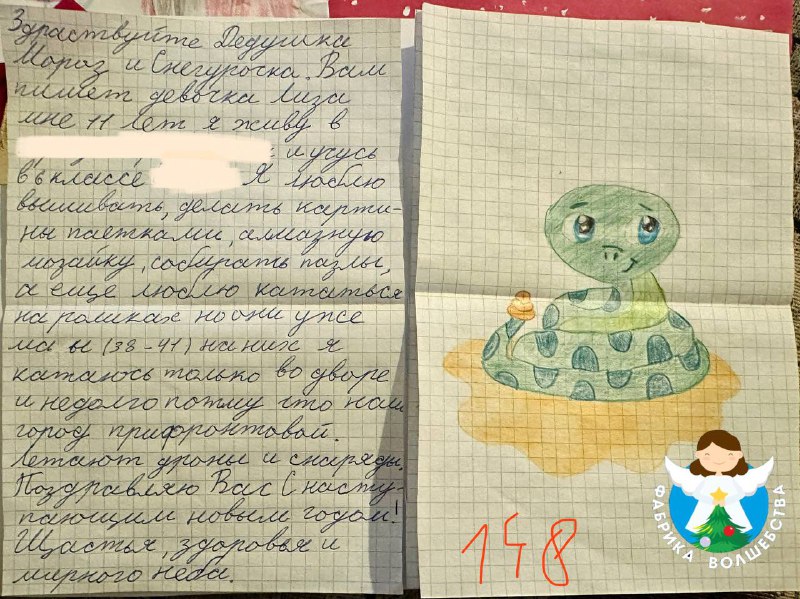 Здраствуйте Дедушка
Мороз и Снегурочка. Вам
пишет девочка Лиза
мне 11 лет я живу в
и учусь
в 6 классе Я люблю
вышивать, делать карти-
ны паетками, алмазную
мозайку, собирать пазлы,
а еще люблю кататься
на роликах но они уже
ма ы (38-41) на них я
катаюсь только во дворе
и недолго потму что наш
город прифронтовой.
Летают дроны и снаряды.
Поздравляю Вас С насту-
пающим новым годом!
Щастья, здоровья и
мирного неба.
148
ФАБРИКА ВОЛШЕБСТВА